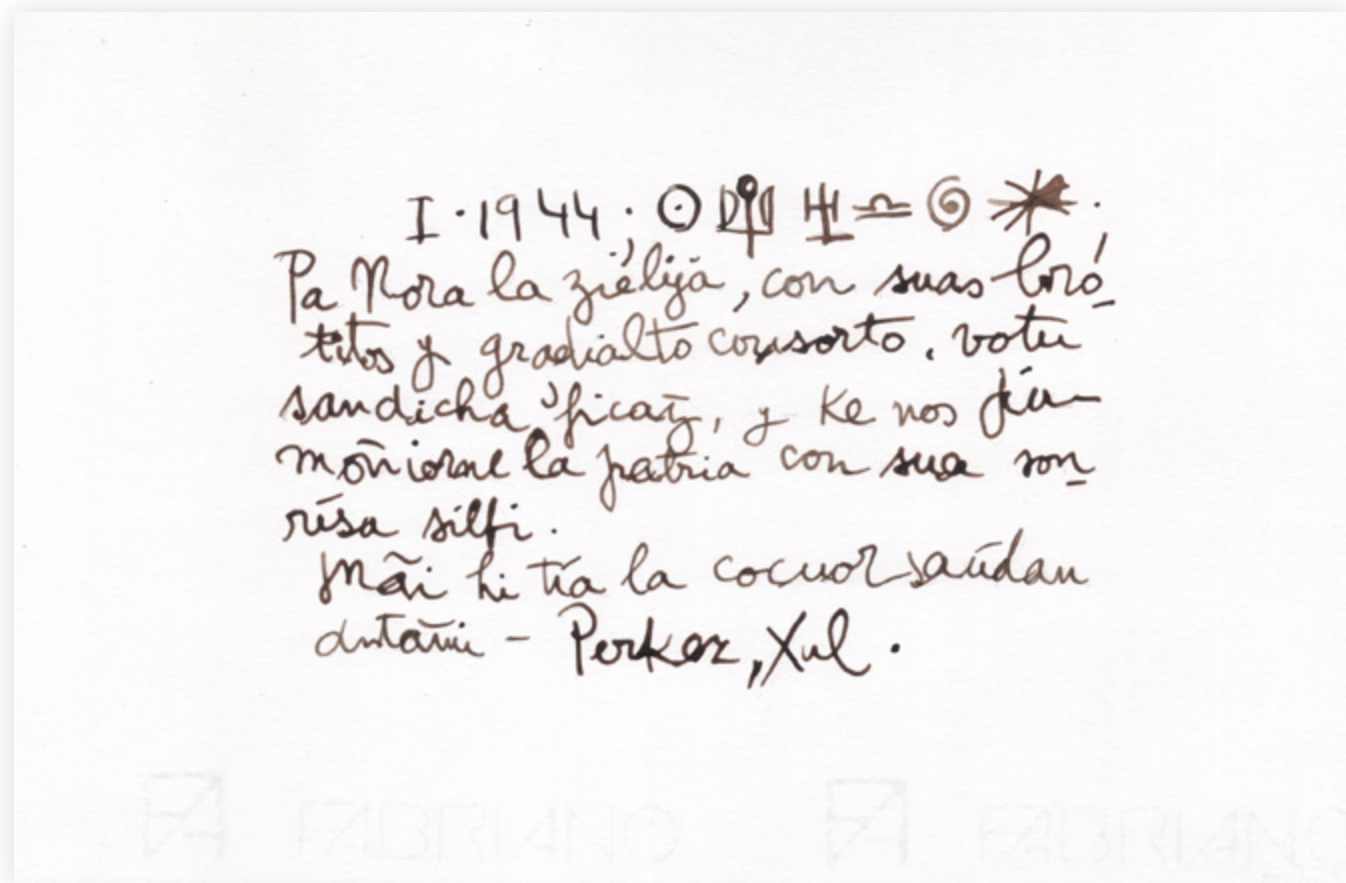 I · 1944 · ☉ ♎
Pa Nora la ziélija, con suas loró-
titos y gradialto consorto. votu
sandicha 'ficaz, y ke nos
la patria con sua son-
risa silfi.
Mãi hi tía la cocuor saúdan
– Perkez, Xul.
FABRIANO FABRIANO